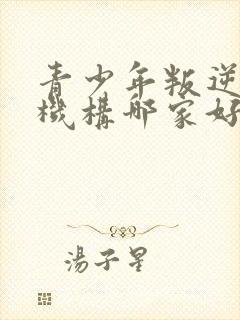 青少年叛逆
機構哪家好
湯子星